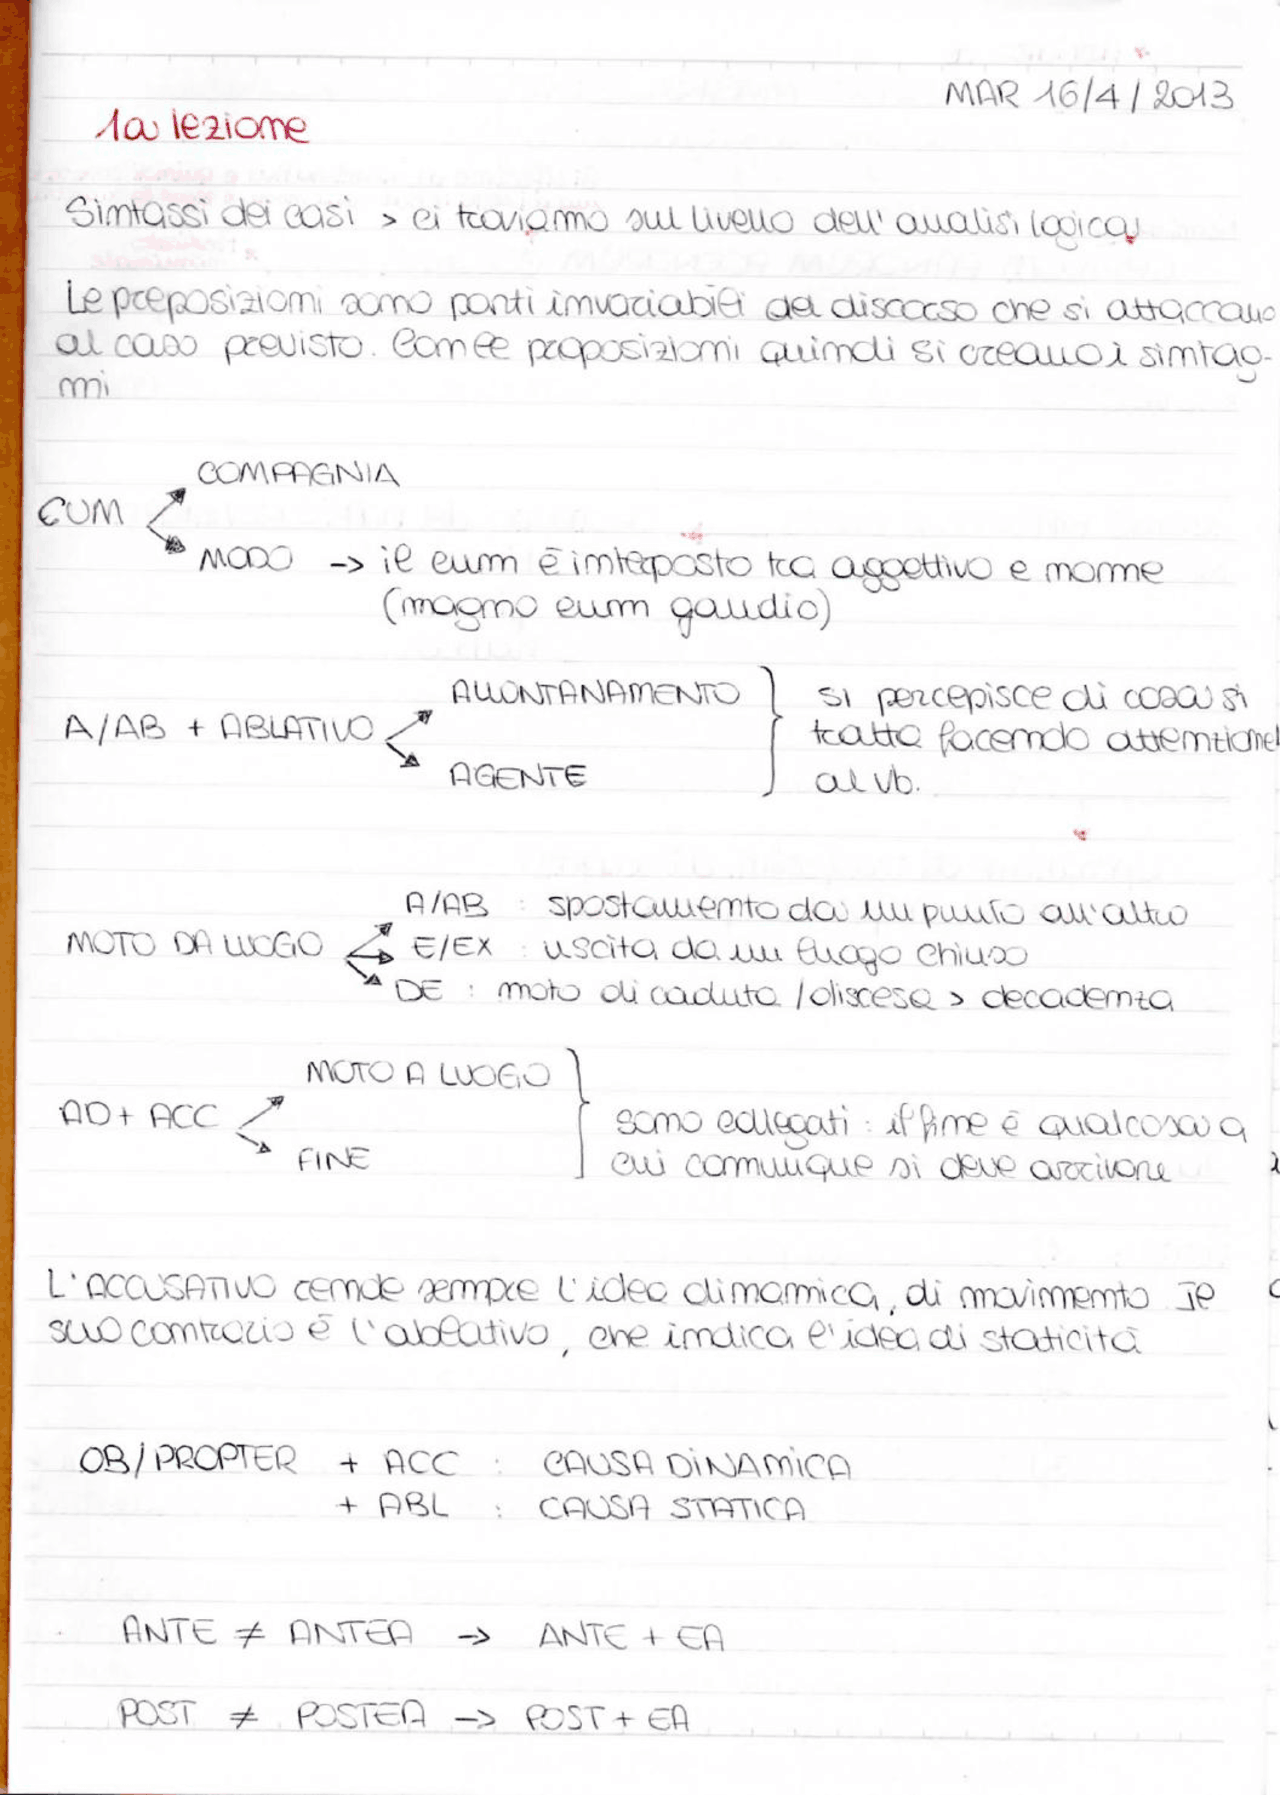 MAR 16/4/2013
1a lezione
Sintassi dei casi > ci troviamo sul livello dell'analisi logica
Le preposizioni sono parti invariabili del discorso che si attaccano
al caso previsto. Con le proposizioni quindi si creano i sintag-
mi
COMPAGNIA
CUM
MODO -> il cum è interposto tra aggettivo e nome
(magno cum gaudio)
ALLONTANAMENTO } si percepisce di cosa si
A/AB + ABLATIVO tratta facendo attenzione
AGENTE al vb.
A/AB : spostamento da un punto all'altro
MOTO DA LUOGO E/EX : uscita da un luogo chiuso
DE : moto di caduta / discesa > decadenza
MOTO A LUOGO
AD + ACC } sono collegati : il fine è qualcosa a
FINE cui comunque si deve arrivare
L'ACCUSATIVO rende sempre l'idea dinamica, di movimento Il
suo contrario è l'ablativo, che indica l'idea di staticità
OB/PROPTER + ACC : CAUSA DINAMICA
+ ABL : CAUSA STATICA
ANTE ≠ ANTEA -> ANTE + EA
POST ≠ POSTEA -> POST + EA